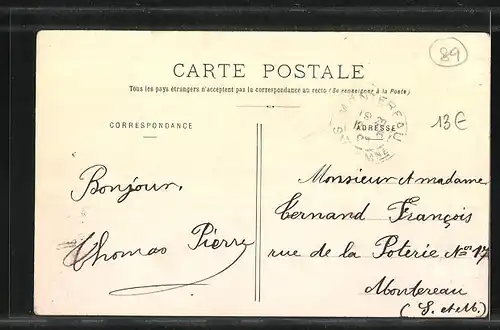 89
CARTE POSTALE
Tous les pays étrangers n'acceptent pas la correspondance au recto (Se renseigner à la Poste)
MONTEREAU
CORRESPONDANCE
ADRESSE
13€
Bonjour.
Thomas Pierre
Monsieur et madame
Fernand François
rue de la Poterie Nos 17
Montereau
(S. et M.)